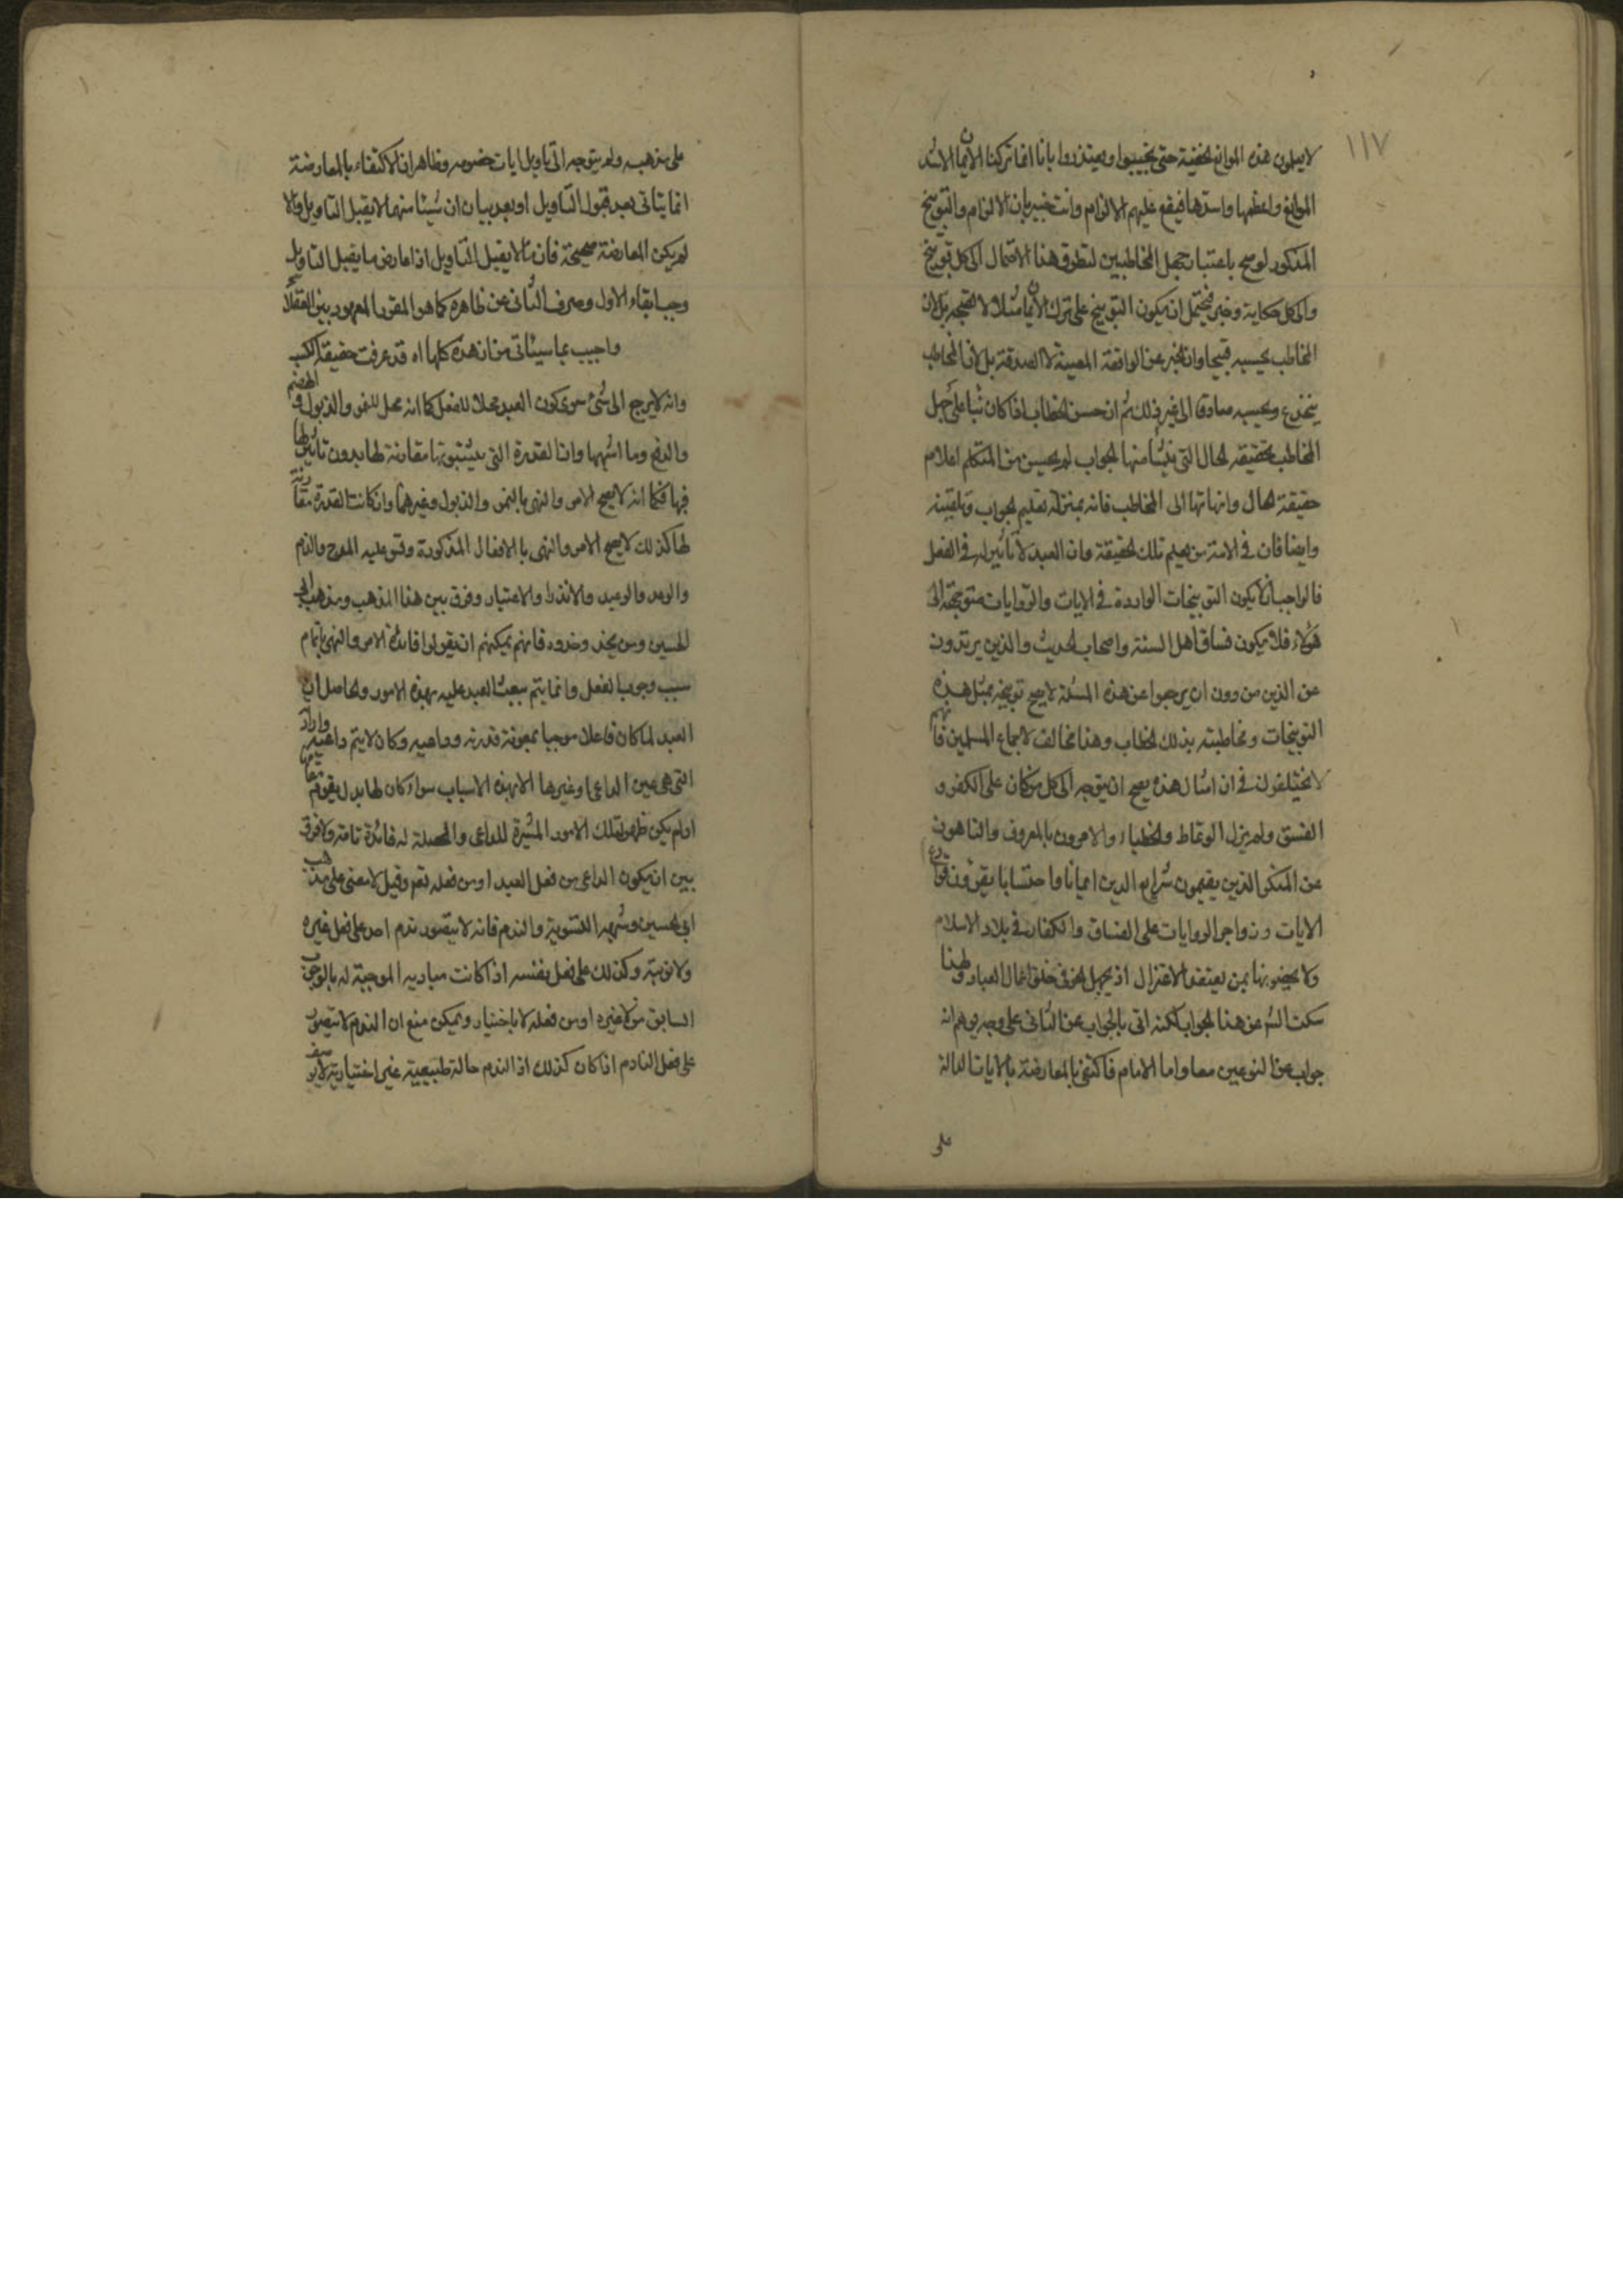 ١١٧
لا يعلمون هذه الموانع الخفية حتى يجيبوا ويعتذروا بانا انما تركنا الايمان لاشد
الموانع واعظمها واسدها فيقع عليهم الالزام وانت خبير بان الالزام والتوبيخ
المذكور لو صح باعتبار جهل المخاطبين لتطرق هذا الاحتمال الى كل توبيخ
والى كل حكاية وخبر فيحتمل ان يكون التوبيخ على ترك الايمان مثلا لا لقبحه بل لان
المخاطب يحسبه قبيحا وان الخبر عن الواقعة المعينة لا لصدقه بل لان المخاطب
ينخدع ويحسبه صادقا الى غير ذلك ثم ان حسن الخطاب اذا كان مبنيا على جهل
المخاطب بحقيقة الحال التي ينشأ منها الجواب لم يحسن من المتكلم اعلام
حقيقة الحال وانهائها الى المخاطب فانه بمنزلة تعليم الجواب وتلقينه
وايضا فان في الامة من يعلم تلك الحقيقة وان العبد لا تأثير له في الفعل
فالواجب ان لا يكون التوبيخات الواردة في الايات والروايات متوجهة الى
هؤلاء فلا يكون فساق اهل السنة واصحاب الحديث والذين يرتدون
عن الدين من دون ان يرجعوا عن هذه المسئلة لا يصح توبيخه بمثل هذه
التوبيخات ومخاطبته بذلك الخطاب وهذا مخالف لاجماع المسلمين فانهم
لا يختلفون في ان امثال هذه يصح ان يتوجه الى كل من كان على الكفر و
الفسق ولم يزل الوعاظ والخطباء والامرون بالمعروف والناهون
عن المنكر الذين يقيمون شرايع الدين ايمانا واحتسابا يقرؤن قوارع
الايات وزواجر الروايات على الفساق والكفار في بلاد الاسلام
ولا يخصونها بمن يعتقد الاعتزال اذ يجهل الحق في خلق اعمال العباد ولهذا
سكت الشم عن هذا الجواب لكنه اتى بالجواب عن الثاني على وجه يوهم انه
جواب عن النوعين معا واما الامام فاكتفى بالمعارضة بالايات الدالة
على
على مذهبه ولم يتوجه الى تاويل ايات خصومه وظاهر ان الاكتفاء بالمعارضة
انما يتاتى بعد قبول التاويل او بعد بيان ان شيئا منهما لا يقبل التاويل والا
لم يكن المعارضة صحيحة فان ما لا يقبل التاويل اذا عارض ما يقبل التاويل
وجب ابقاء الاول وصرف الثاني عن ظاهره كما هو المقرر المعهود بين العقلاء
واجيب بما سيئاتي من ان هذه كلها اه قد عرفت حقيقة الكسب
وانه لا يرجع الى شئ سوى كون العبد محلا للفعل كما انه محل للنمو والذبول والهضم
والدفع وما اشبهها وان القدرة التي يثبتونها مقارنة لها بدون تاثيرها
فيها فكما انه لا يصح الامر والنهى بالنمو والذبول وغيرهما وان كانت القدرة مقارنة
لها كذلك لا يصح الامر والنهى بالافعال المذكورة وقس عليه المدح والذم
والوعد والوعيد والانذار والاعتبار وفرق بين هذا المذهب ومذهب ابي
الحسين ومن يحذو حذوه فانهم يمكنهم ان يقولوا فائدة الامر والنهى اتمام
سبب وجوب الفعل وانما يتم ببعث العبد عليه بهذه الامور والحاصل ان
العبد لما كان فاعلا موجبا بمعونة قدرته وداعيه وكان لا يتم داعيه وارادته
التي هي عين الداعي او غيرها الا بهذه الاسباب سواء كان لها بدل يقوم مقامها
او لم يكن ظهر لتلك الامور المثيرة للداعي والمحصلة له فائدة تامة ولا فرق
بين ان يكون الداعي من فعل العبد او من فعله تعم وقيل لا معنى على مذهب
ابي الحسين وشبهه للتسوية والندم فانه لا يتصور ندم احد على فعل غيره
ولا توبته وكذلك على فعل نفسه اذا كانت مباديه الموجبة له بالوجوب
السابق من غيره او من فعله لا باختيار ويمكن منع ان الندم لا يتصور
على فعل النادم اذا كان كذلك اذ الندم حالة طبيعية غير اختيارية لا يوصف